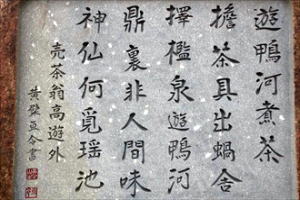 遊鴨河煮茶
擔茶具出蝸舍
擇檻泉遊鴨河
鼎裏非人間味
神仙何覓瑶池
売茶翁高遊外
黄檗 書